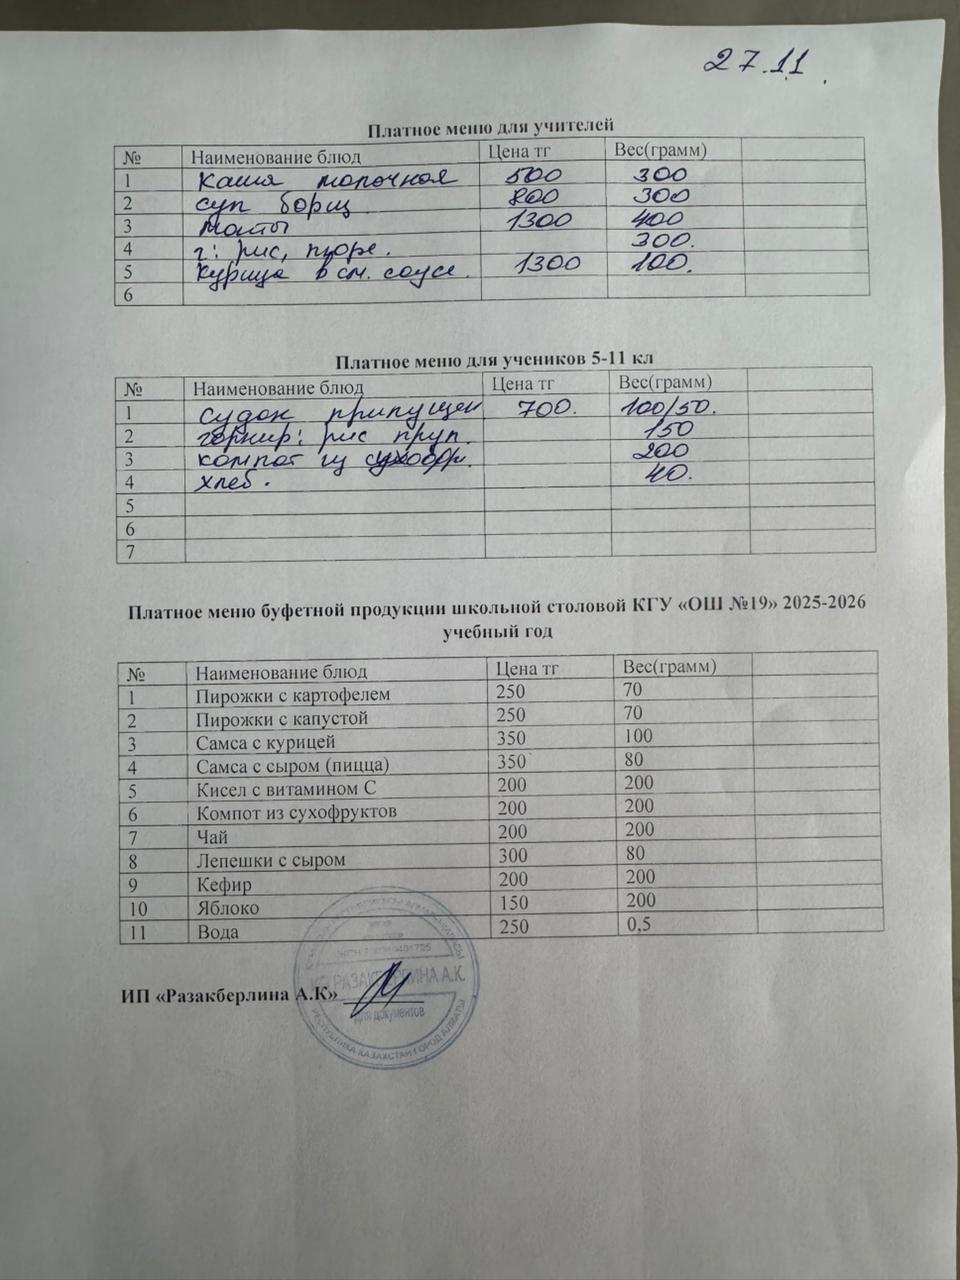 27.11.
Платное меню для учителей
№ Наименование блюд Цена тг Вес(грамм)
1 Каша молочная 500 300
2 суп борщ 800 300
3 манты 1300 400
4 г: рис, пюре. 300.
5 Курица в см. соусе. 1300 100.
6
Платное меню для учеников 5-11 кл
№ Наименование блюд Цена тг Вес(грамм)
1 судак припущен 700. 100/50.
2 гарнир: рис прип. 150
3 компот из сухофр. 200
4 хлеб. 40.
5
6
7
Платное меню буфетной продукции школьной столовой КГУ «ОШ №19» 2025-2026
учебный год
№ Наименование блюд Цена тг Вес(грамм)
1 Пирожки с картофелем 250 70
2 Пирожки с капустой 250 70
3 Самса с курицей 350 100
4 Самса с сыром (пицца) 350 80
5 Кисел с витамином С 200 200
6 Компот из сухофруктов 200 200
7 Чай 200 200
8 Лепешки с сыром 300 80
9 Кефир 200 200
10 Яблоко 150 200
11 Вода 250 0,5
ИП «Разакберлина А.К»
ИП РАЗАКБЕРЛИНА А.К.
для документов
РЕСПУБЛИКА КАЗАХСТАН ГОРОД АЛМАТЫ